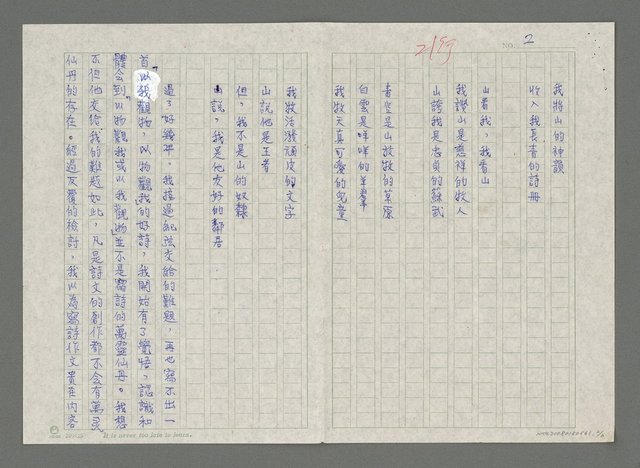 21行
NO. 2
我將山的神韻
收入我長青的詩冊
山看我，我看山
我讚山是慈祥的牧人
山誇我是忠貞的蘇武
青空是山放牧的草原
白雲是咩咩的羊羣
我牧天真可愛的兒童
我牧活潑頑皮的文字
山說他是王者
但，我不是山的奴隸
山說，我是他友好的鄰居
過了好幾年。我接過紀弦交給的難題，再也寫不出一
首「以我觀物，以物觀我」的好詩，我開始有了覺悟，認識和
體會到「以物觀我或以我觀物」並不是寫詩的萬靈仙丹。我想
不但他交給我的難題如此，凡是詩文的創作都不會有萬靈
仙丹的存在。經過反覆的檢討，我以為寫詩作文貴在內容
It is never too late to learn.